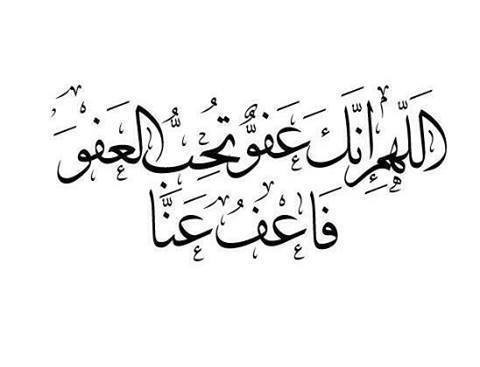 اَللَّهُمَّ إِنَّكَ عَفُوٌّ تُحِبُّ العَفْوَ
فَاعْفُ عَنَّا